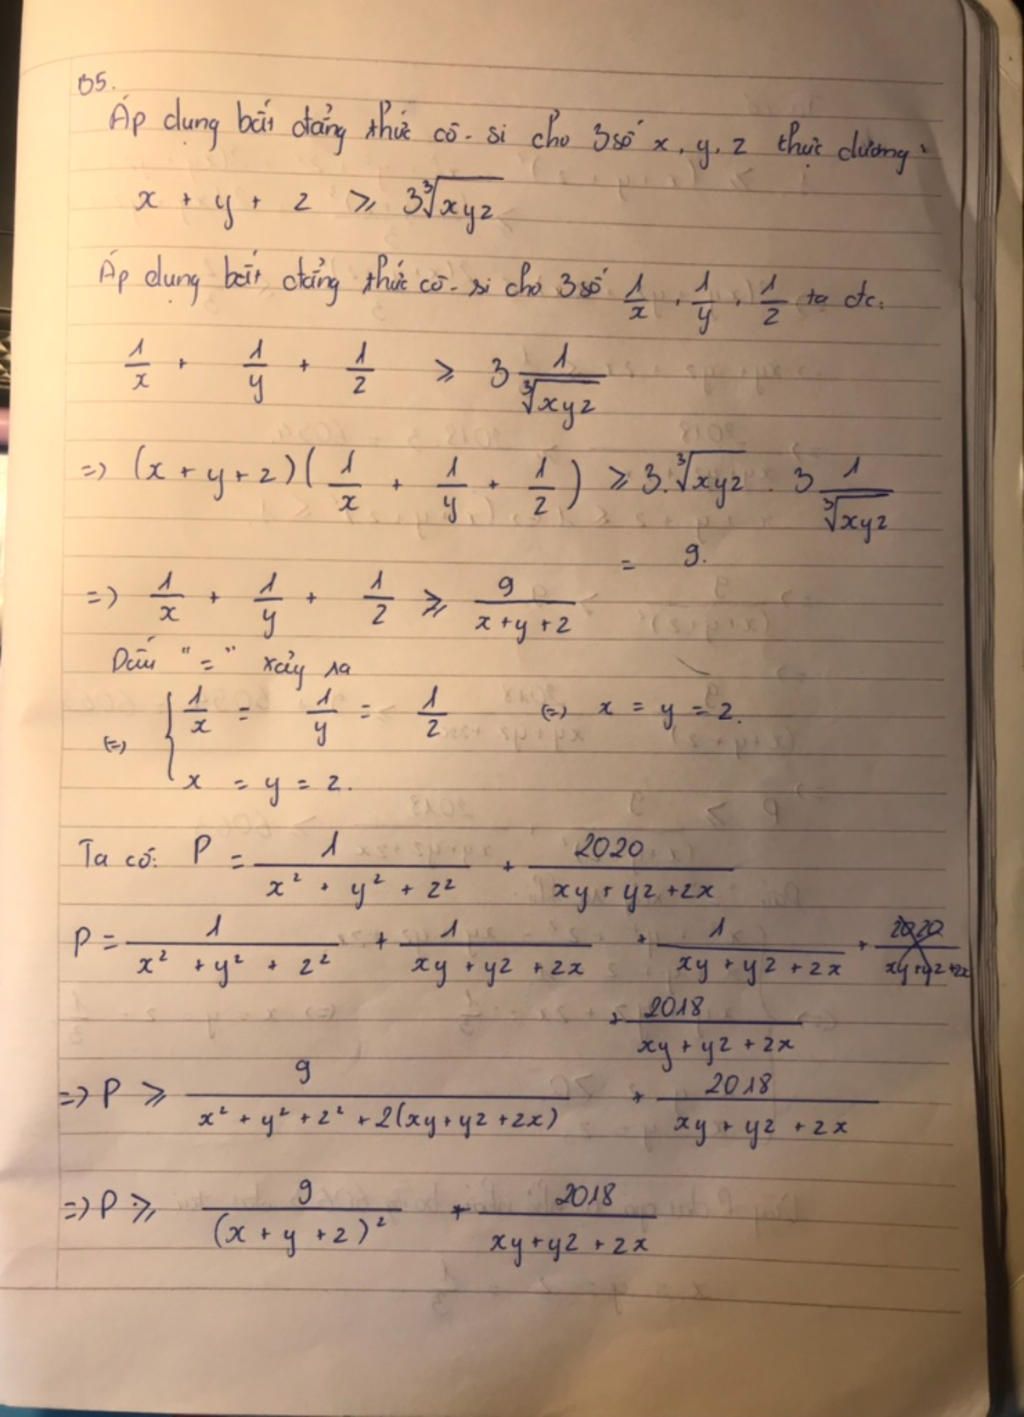 05.
Áp dụng bất đẳng thức cô-si cho 3 số x, y, z thực dương:
x + y + z ⩾ 3∛xyz
Áp dụng bất đẳng thức cô-si cho 3 số 1/x, 1/y, 1/z ta đc.
1/x + 1/y + 1/z ⩾ 3 1/∛xyz
=> (x + y + z)(1/x + 1/y + 1/z) ⩾ 3.∛xyz . 3 1/∛xyz
= 9.
=> 1/x + 1/y + 1/z ⩾ 9/(x+y+z)
Dấu "=" xảy ra
(=) { 1/x = 1/y = 1/z (=) x = y = z.
x = y = z.
Ta có: P = 1/(x² + y² + z²) + 2020/(xy+yz+zx)
P = 1/(x² + y² + z²) + 1/(xy + yz + zx) + 1/(xy + yz + zx) + 2020/(xy+yz+zx)
+ 2018/(xy + yz + zx)
=> P ⩾ 9/(x² + y² + z² + 2(xy+yz+zx)) + 2018/(xy + yz + zx)
=> P ⩾ 9/(x + y + z)² + 2018/(xy+yz+zx)